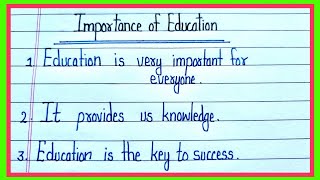 Importance of Education
1. Education is very important for
everyone.
2. It provides us knowledge.
3. Education is the key to success.